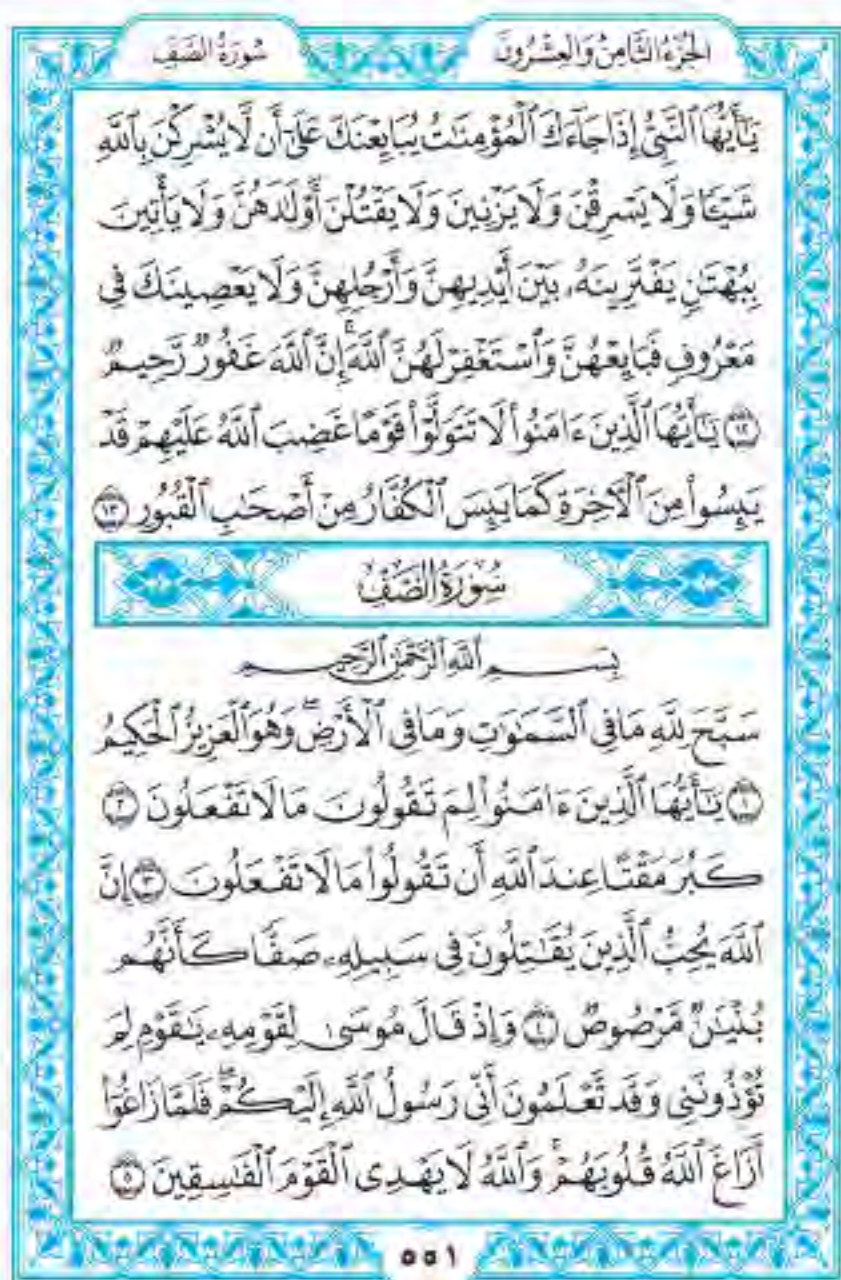 الجُزْءُ الثَّامِنُ وَالعِشْرُونَ سُورَةُ الصَّفِّ
يَٰٓأَيُّهَا ٱلنَّبِىُّ إِذَا جَآءَكَ ٱلْمُؤْمِنَٰتُ يُبَايِعْنَكَ عَلَىٰٓ أَن لَّا يُشْرِكْنَ بِٱللَّهِ
شَيْـًٔا وَلَا يَسْرِقْنَ وَلَا يَزْنِينَ وَلَا يَقْتُلْنَ أَوْلَٰدَهُنَّ وَلَا يَأْتِينَ
بِبُهْتَٰنٍ يَفْتَرِينَهُۥ بَيْنَ أَيْدِيهِنَّ وَأَرْجُلِهِنَّ وَلَا يَعْصِينَكَ فِى
مَعْرُوفٍ فَبَايِعْهُنَّ وَٱسْتَغْفِرْ لَهُنَّ ٱللَّهَ ۚ إِنَّ ٱللَّهَ غَفُورٌ رَّحِيمٌ
١٢ يَٰٓأَيُّهَا ٱلَّذِينَ ءَامَنُوا۟ لَا تَتَوَلَّوْا۟ قَوْمًا غَضِبَ ٱللَّهُ عَلَيْهِمْ قَدْ
يَئِسُوا۟ مِنَ ٱلْءَاخِرَةِ كَمَا يَئِسَ ٱلْكُفَّارُ مِنْ أَصْحَٰبِ ٱلْقُبُورِ ١٣
سُورَةُ الصَّفِّ
بِسْمِ ٱللَّهِ ٱلرَّحْمَٰنِ ٱلرَّحِيمِ
سَبَّحَ لِلَّهِ مَا فِى ٱلسَّمَٰوَٰتِ وَمَا فِى ٱلْأَرْضِ ۖ وَهُوَ ٱلْعَزِيزُ ٱلْحَكِيمُ
١ يَٰٓأَيُّهَا ٱلَّذِينَ ءَامَنُوا۟ لِمَ تَقُولُونَ مَا لَا تَفْعَلُونَ ٢
كَبُرَ مَقْتًا عِندَ ٱللَّهِ أَن تَقُولُوا۟ مَا لَا تَفْعَلُونَ ٣ إِنَّ
ٱللَّهَ يُحِبُّ ٱلَّذِينَ يُقَٰتِلُونَ فِى سَبِيلِهِۦ صَفًّا كَأَنَّهُم
بُنْيَٰنٌ مَّرْصُوصٌ ٤ وَإِذْ قَالَ مُوسَىٰ لِقَوْمِهِۦ يَٰقَوْمِ لِمَ
تُؤْذُونَنِى وَقَد تَّعْلَمُونَ أَنِّى رَسُولُ ٱللَّهِ إِلَيْكُمْ ۖ فَلَمَّا زَاغُوٓا۟
أَزَاغَ ٱللَّهُ قُلُوبَهُمْ ۚ وَٱللَّهُ لَا يَهْدِى ٱلْقَوْمَ ٱلْفَٰسِقِينَ ٥
٥٥١